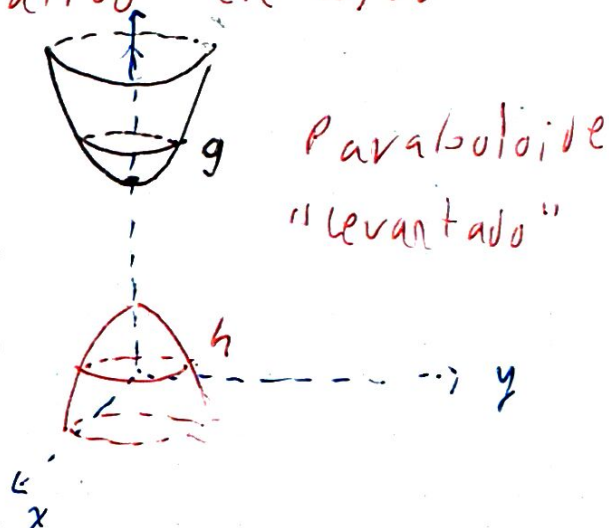 g
Paraboloide
"Levantado"
h
y
x